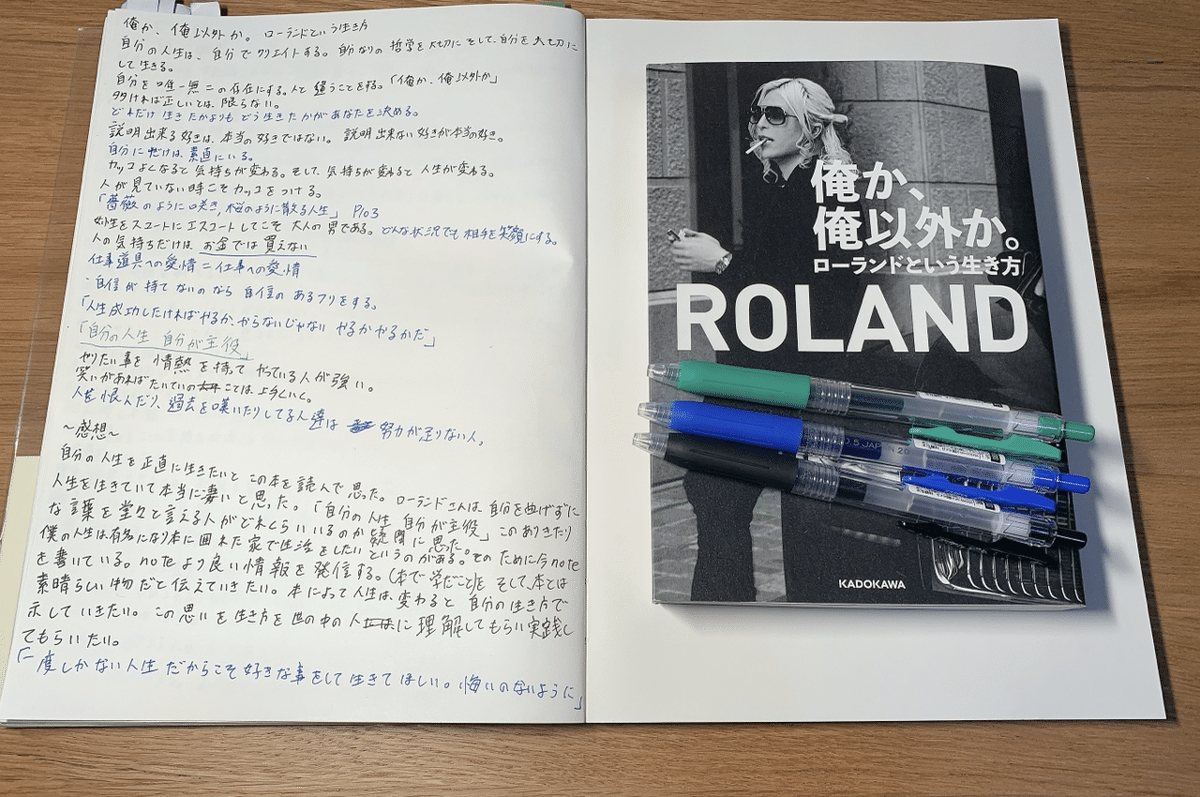 俺か、俺以外か。ローランドという生き方
自分の人生は、自分でクリエイトする。自分なりの哲学を大切にそして、自分を大切に
して生きる。
自分を唯一無二の存在にする。人と違うことをする。「俺か、俺以外か」
多ければ正しいとは、限らない。
どれだけ生きたかよりもどう生きたかがあなたを決める。
説明出来る好きは、本当の好きではない。説明出来ない好きが本当の好き。
自分にだけは、素直にいる。
カッコよくなると気持ちが変わる。そして、気持ちが変わると人生が変わる。
人が見ていない時こそカッコをつける。
「薔薇のように咲き、桜のように散る人生」 P103
女性をスマートにエスコートしてこそ大人の男である。どんな状況でも相手を笑顔にする。
人の気持ちだけはお金では買えない
仕事道具への愛情=仕事への愛情
自信が持てないのなら自信のあるフリをする。
「人生成功したければやるか、やらないじゃない やるかやるかだ」
「自分の人生 自分が主役」
やりたい事を情熱を持ってやっている人が強い。
笑いがあればたいていのことは上手くいく。
人を恨んだり、過去を嘆いたりしてる人達は 努力が足りない人。
~感想~
自分の人生を正直に生きたいとこの本を読んで思った。ローランドさんは自分を曲げずに
人生を生きていて本当に凄いと思った。「自分の人生 自分が主役」このありきたり
な言葉を堂々と言える人がどれくらいいるのか疑問に思った。
僕の人生は有名になり本に囲まれた家で生活をしたいというのがある。そのために今note
を書いている。noteより良い情報を発信する。(本で学だこと)を そして、本とは
素晴らしい物だと伝えていきたい。本によって人生は、変わると自分の生き方で
示していきたい。この思いを生き方を世の中の人に理解してもらい実践し
てもらいたい。
「一度しかない人生だからこそ好きな事をして生きてほしい。悔いのないように」
俺か、
俺以外か。
ローランドという生き方
ROLAND
KADOKAWA
0.5 JAPAN